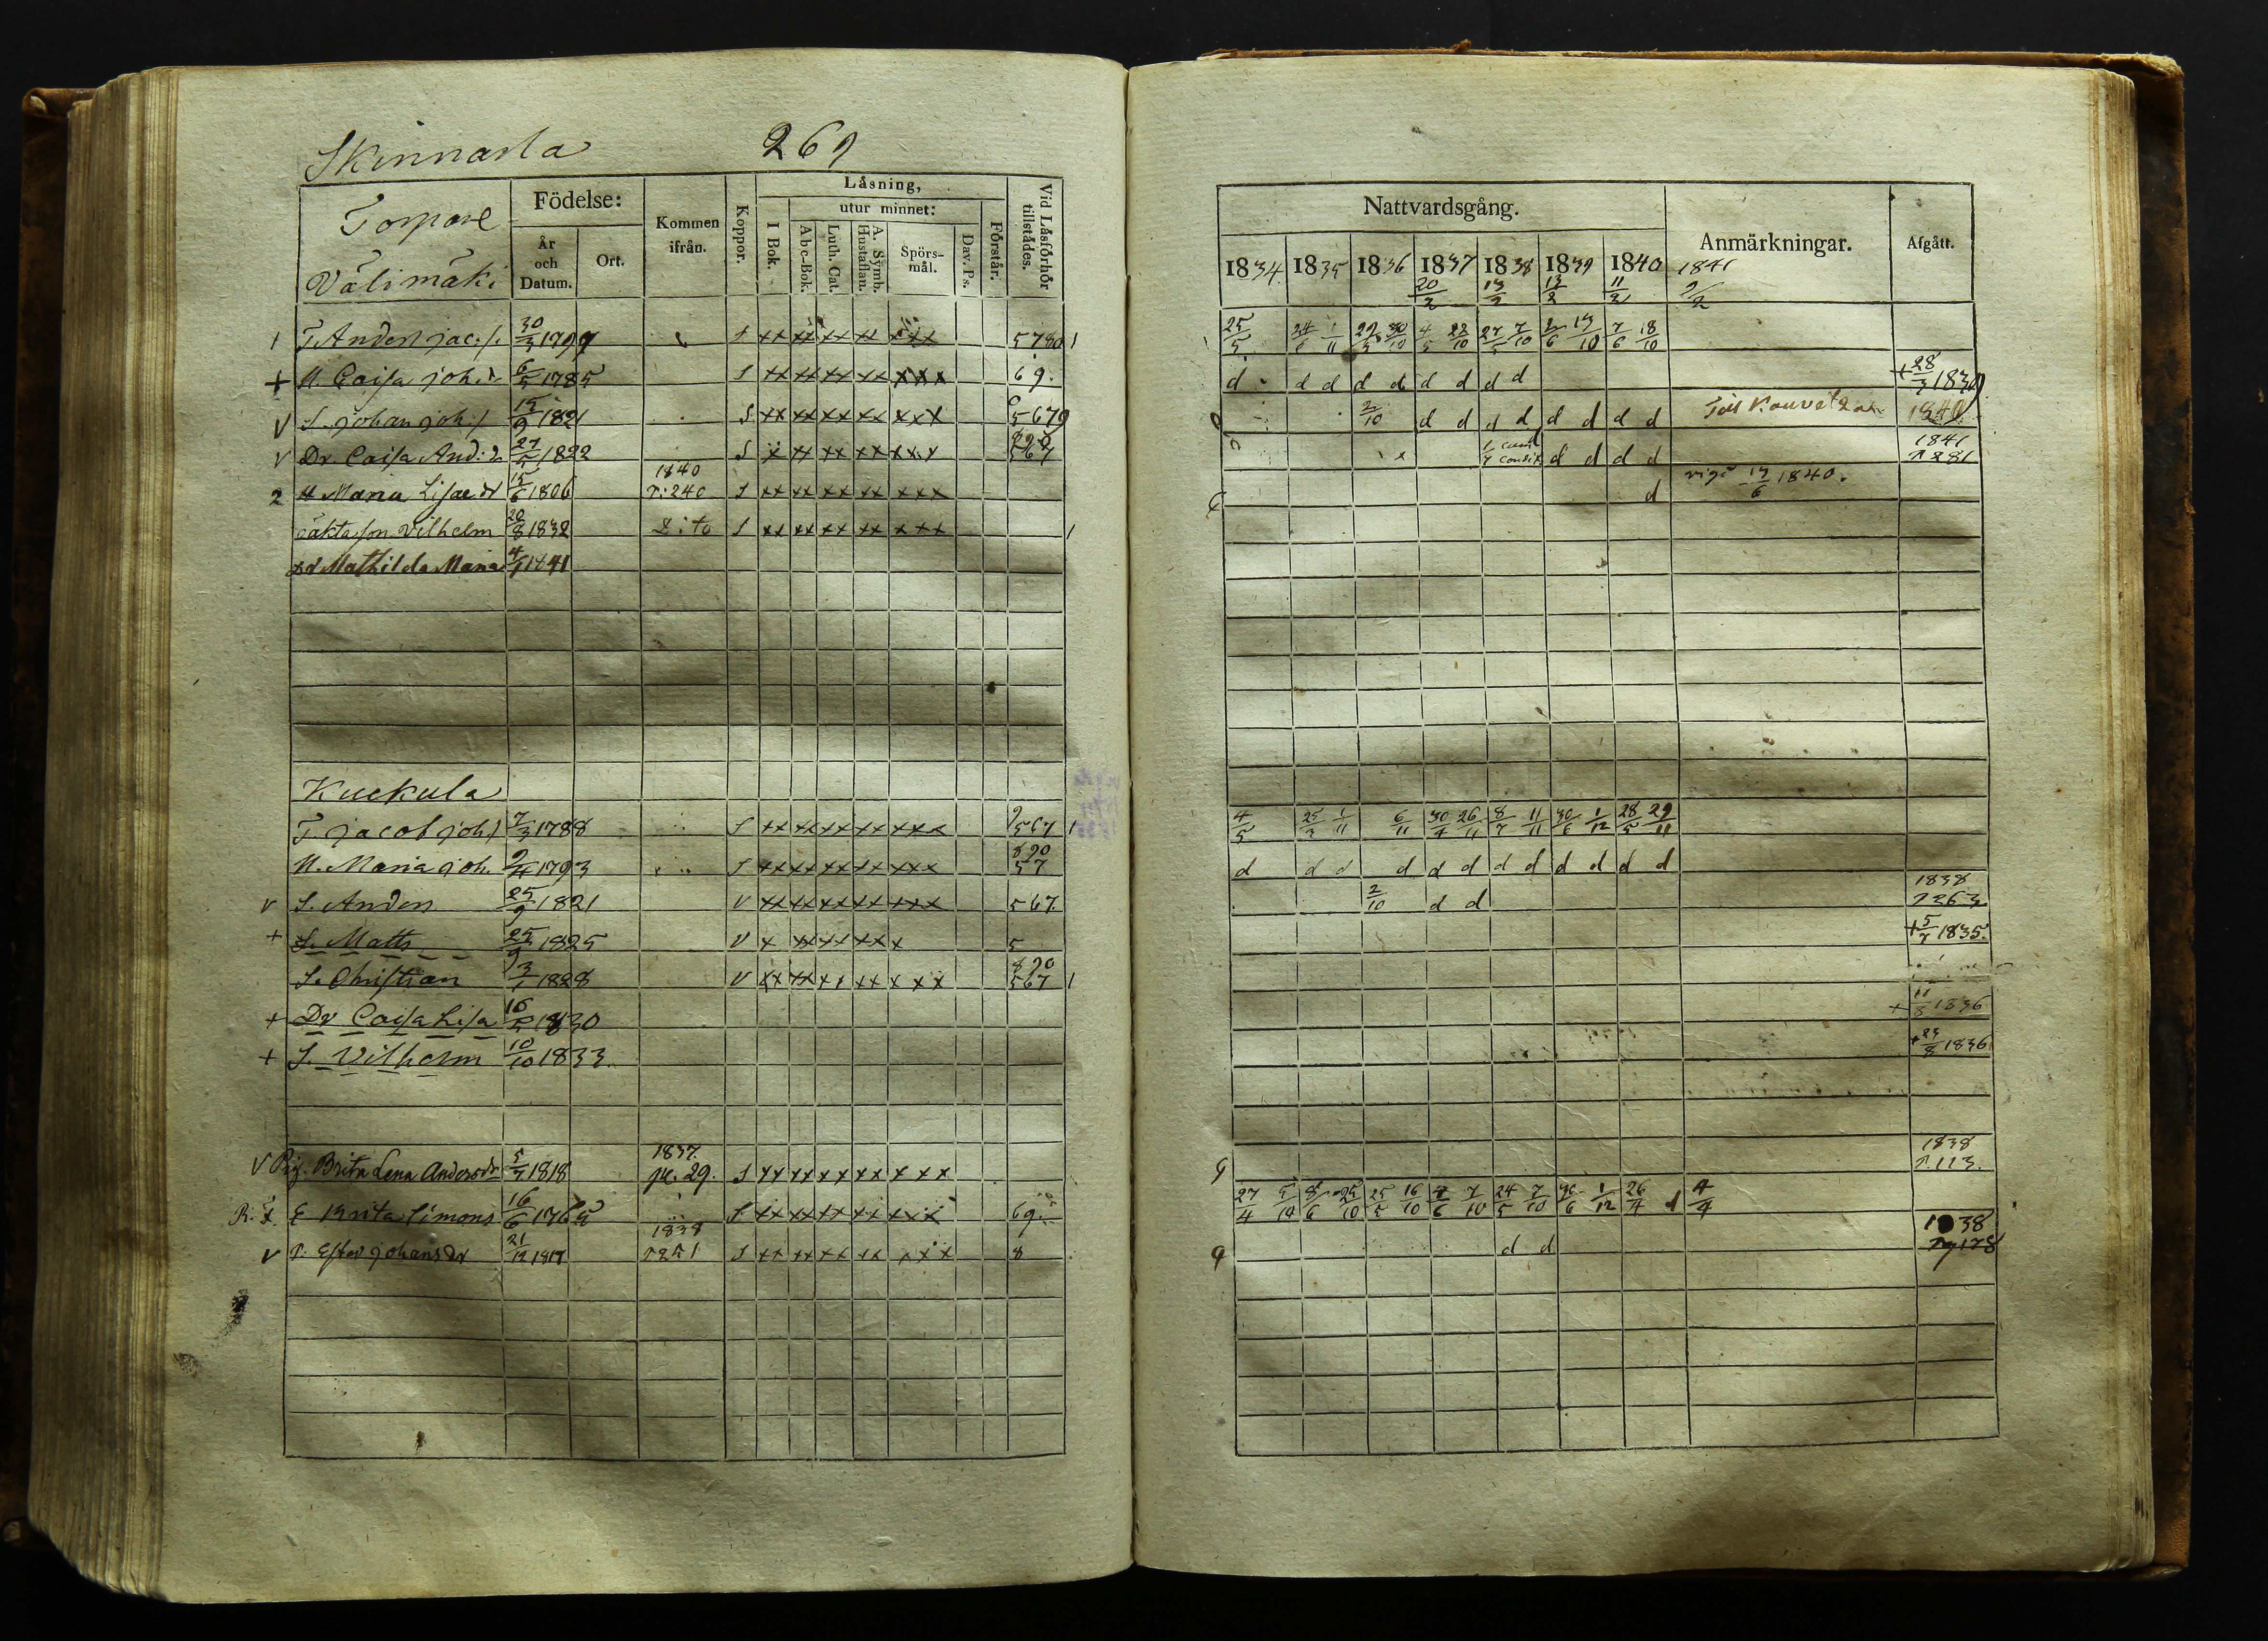 Skinnarla 269
Torpare
Välimäki
Födelse:
År och Datum.
Ort.
Kommen ifrån.
Koppor.
Läsning,
I Bok.
utur minnet:
Abc-Bok.
Luth. Cat.
A. Symb. Hustaflan.
Spörs-mål.
Dav. Ps.
Förstår:
Vid Läsförhör tillstådes.
Nattvardsgång.
Anmärkningar.
Afgått.
1834. 1835 1836 1837 1838 1839 1840 1841
20/2 13/2 13/2 11/2 9/2
1 T. Anders jac: s. 30/3 1799 S xx xx xx xx xxx 5780 1
25/5 24/6 1/11 29/5 30/10 4/5 22/10 27/5 7/10 2/6 13/10 7/6 18/10
+ H. Caisa joh. d. 6/5 1785 S xx xx xx xx xxx 69.
d d d d d d d d d + 28/3 1839
V S. johan joh: s 15/9 1821 S xx xx xx xx xxx 5679
2/10 d d d d d d d d 1840
V Dr. Caisa And: d. 27/5 1822 S x xx xx xx xxx 567
d d d d 1841 P 281
2 H Maria Lisae dr 15/6 1806 1840 P: 240 S xx xx xx xx xxx
d vigd 13/6 1840.
oäkta son Vilhelm 20/8 1832 D:to S xx xx xx xx xxx 1
Dr Mathilda Maria 4/1 1841
Kuckula
T. jacob joh. s 7/3 1788 S xx xx xx xx xxx 567 1
4/5 25/3 1/11 6/11 30/4 26/11 8/7 11/11 30/6 1/12 28/5 29/11
H. Maria joh. 2/4 1793 S xx xx xx xx xxx 890 57
d d d d d d d d d d d d
V S. Anders 25/9 1821 V xx xx xx xx xxx 567.
2/10 d d 1838 P 263
+ S. Matts 25/9 1825 V x xx xx xx x 5
+ 5/7 1835.
S. Christian 3/1 1828 V xx xx xx xx xxx 890 567 1
+ Dr Caisa Lisa 1830
+ 11/8 1836
+ S. Vilhelm 10/10 1833.
+ 23/8 1836
V Pig. Brita Lena Andersdr 5/7 1818 1837. pa. 29. S xx xx xx xx xxx
1838 P. 113.
E Brita Simons 16/6 1765 S xx xx xx xx xxx 69.
27/4 5/10 8/6 25/10 25/5 16/10 4/6 7/10 24/5 7/10 30/6 1/12 26/4 d 4/4
V P. Ester johansdr 21/12 1817 1838 P 251 S xx xx xx xx xxx 8
d d 1838 178